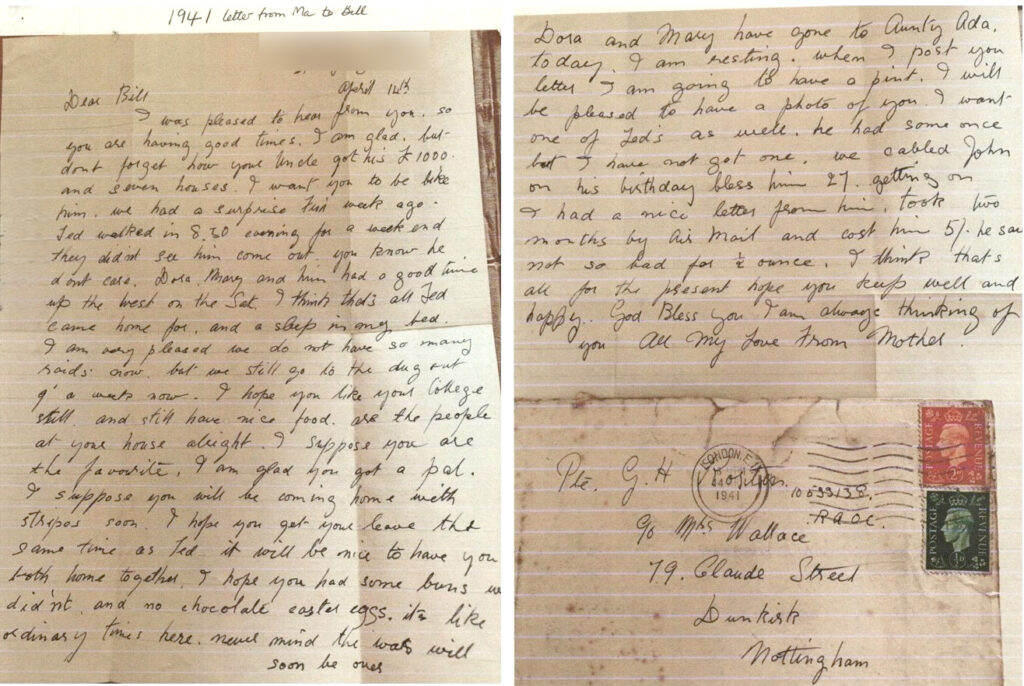 1941 letter from Ma to Bill
April 14th
Dear Bill
I was pleased to hear from you. so
you are having good times. I am glad. but
dont forget how your Uncle got his £1000.
and seven houses. I want you to be like
him. we had a surprise week ago.
Ted walked in 8.30 evening for a week end
they didnt see him come out. you know he
dont care. Dora, Mary and him had a good time
up the west on the Sat. I think thats all Ted
came home for. and a sleep in my bed.
I am very pleased we do not have so many
raids now. but we still go to the dug out
a week now. I hope you like your College
still. and still have nice food. are the people
at your house alright. I suppose you are
the favourite. I am glad you got a pal.
I suppose you will be coming home with
stripes soon. I hope you get your leave the
same time as Ted it will be nice to have you
both home together. I hope you had some buns we
didnt. and no chocolate easter eggs. its like
ordinary times here. never mind the war will
soon be over
Dora and Mary have gone to Aunty Ada.
today. I am resting. when I post you
letter I am going to have a pint. I will
be pleased to have a photo of you. I want
one of Ted's as well. he had some once
but I have not got one. we cabled John
on his birthday bless him 27. getting on
I had a nice letter from him. took two
months by Air Mail and cost him 5/- he said
not so bad for ½ ounce. I think that's
all for the present hope you keep well and
happy. God Bless you I am always thinking of
you All My Love From Mother.
LONDON, E.
1941
POSTAGE REVENUE
2D
POSTAGE REVENUE
½D
Pte. G. H
R.A.O.C.
c/o Mrs Wallace
79. Claude Street
Dunkirk
Nottingham